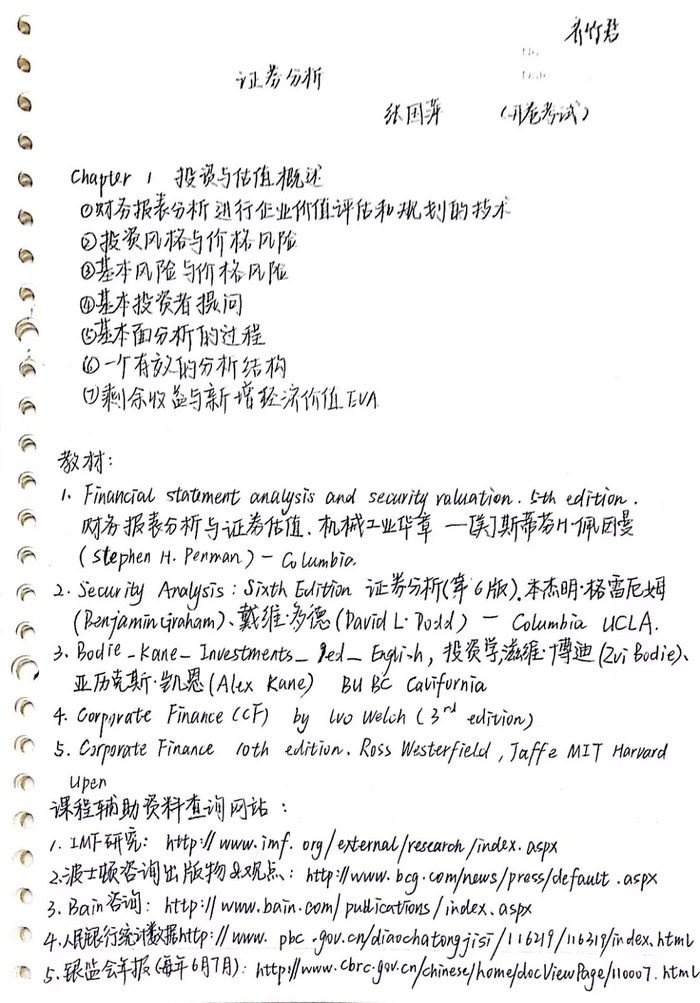 齐竹君
No.
Date
证券分析
张国萍 (开卷考试)
Chapter 1 投资与估值概述
①财务报表分析进行企业价值评估和规划的技术
②投资风格与价格风险
③基本风险与价格风险
④基本投资者提问
⑤基本面分析的过程
⑥一个有效的分析结构
⑦剩余收益与新增经济价值EVA
教材:
1. Financial statement analysis and security valuation. 5th edition.
财务报表分析与证券估值. 机械工业华章 —[美]斯蒂芬H·佩因曼
(Stephen H. Penman) — Columbia.
2. Security Analysis: Sixth Edition 证券分析(第6版). 本杰明·格雷厄姆
(Benjamin Graham)、戴维·多德 (David L. Dodd) — Columbia UCLA.
3. Bodie_Kane_Investments_9ed_English, 投资学,滋维·博迪 (Zvi Bodie)、
亚历克斯·凯恩 (Alex Kane) BU BC California
4. Corporate Finance (CF) by Ivo Welch (3rd edition)
5. Corporate Finance 10th edition. Ross Westerfield, Jaffe MIT Harvard
Upen
课程辅助资料查询网站:
1. IMF研究: http://www.imf.org/external/research/index.aspx
2.波士顿咨询出版物&观点: http://www.bcg.com/news/press/default.aspx
3. Bain咨询: http://www.bain.com/publications/index.aspx
4.人民银行统计数据http://www.pbc.gov.cn/diaochatongjisi/116219/116319/index.html
5.银监会年报(每年6月7月): http://www.cbrc.gov.cn/chinese/home/docViewPage/110007.html